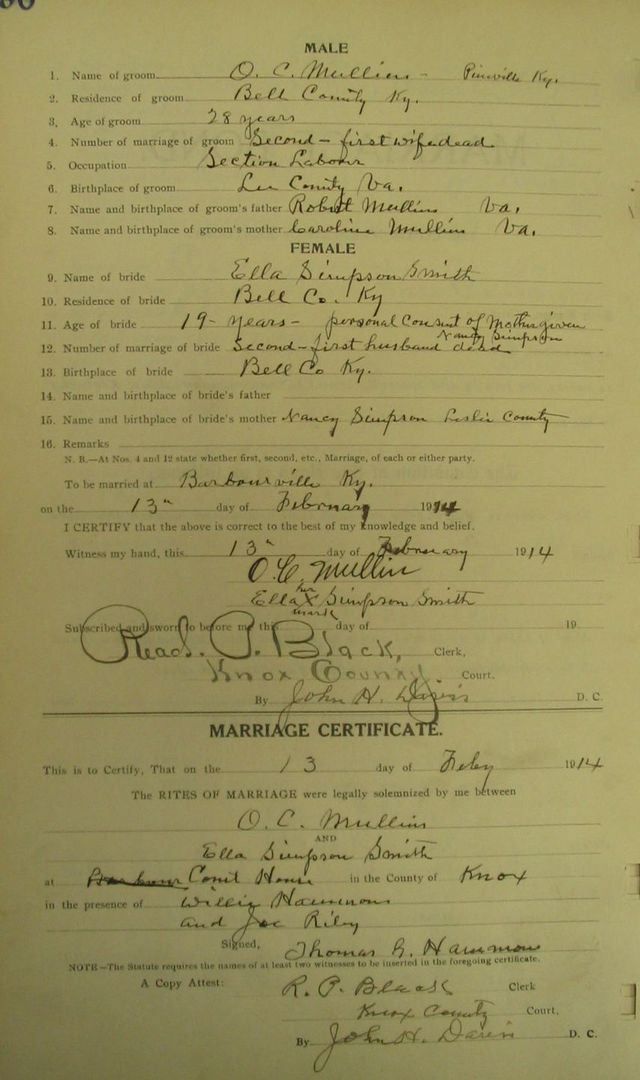 MALE
1. Name of groom O. C. Mullins - Pineville Ky.
2. Residence of groom Bell County Ky.
3. Age of groom 28 years
4. Number of marriage of groom Second - first wife dead
5. Occupation Section Labour
6. Birthplace of groom Lee County Va.
7. Name and birthplace of groom's father Robert Mullins Va.
8. Name and birthplace of groom's mother Caroline Mullins Va.
FEMALE
9. Name of bride Ella Simpson Smith
10. Residence of bride Bell Co. Ky
11. Age of bride 19 - years - personal consent of Mother given
Nancy Simpson
12. Number of marriage of bride Second - first husband dead
13. Birthplace of bride Bell Co Ky.
14. Name and birthplace of bride's father
15. Name and birthplace of bride's mother Nancy Simpson Leslie County
16. Remarks
N. B.—At Nos. 4 and 12 state whether first, second, etc., Marriage, of each or either party.
To be married at Barbourville Ky.
on the 13" day of February 1914
I CERTIFY that the above is correct to the best of my knowledge and belief.
Witness my hand, this 13" day of February 1914
O. C. Mullin
her
Ella X Simpson Smith
mark
Subscribed and sworn to before me this day of 19
Read. P. Black, Clerk,
Knox County Court.
By John H. Davis D. C.
MARRIAGE CERTIFICATE.
This is to Certify, That on the 13 day of Feby 1914
The RITES OF MARRIAGE were legally solemnized by me between
O. C. Mullins
AND
Ella Simpson Smith
at Court House in the County of Knox
in the presence of Willie Hammons
and Joe Riley
Signed, Thomas G. Hammons
NOTE—The Statute requires the names of at least two witnesses to be inserted in the foregoing certificate.
A Copy Attest: R. P. Black Clerk
Knox County Court,
By John H. Davis D. C.